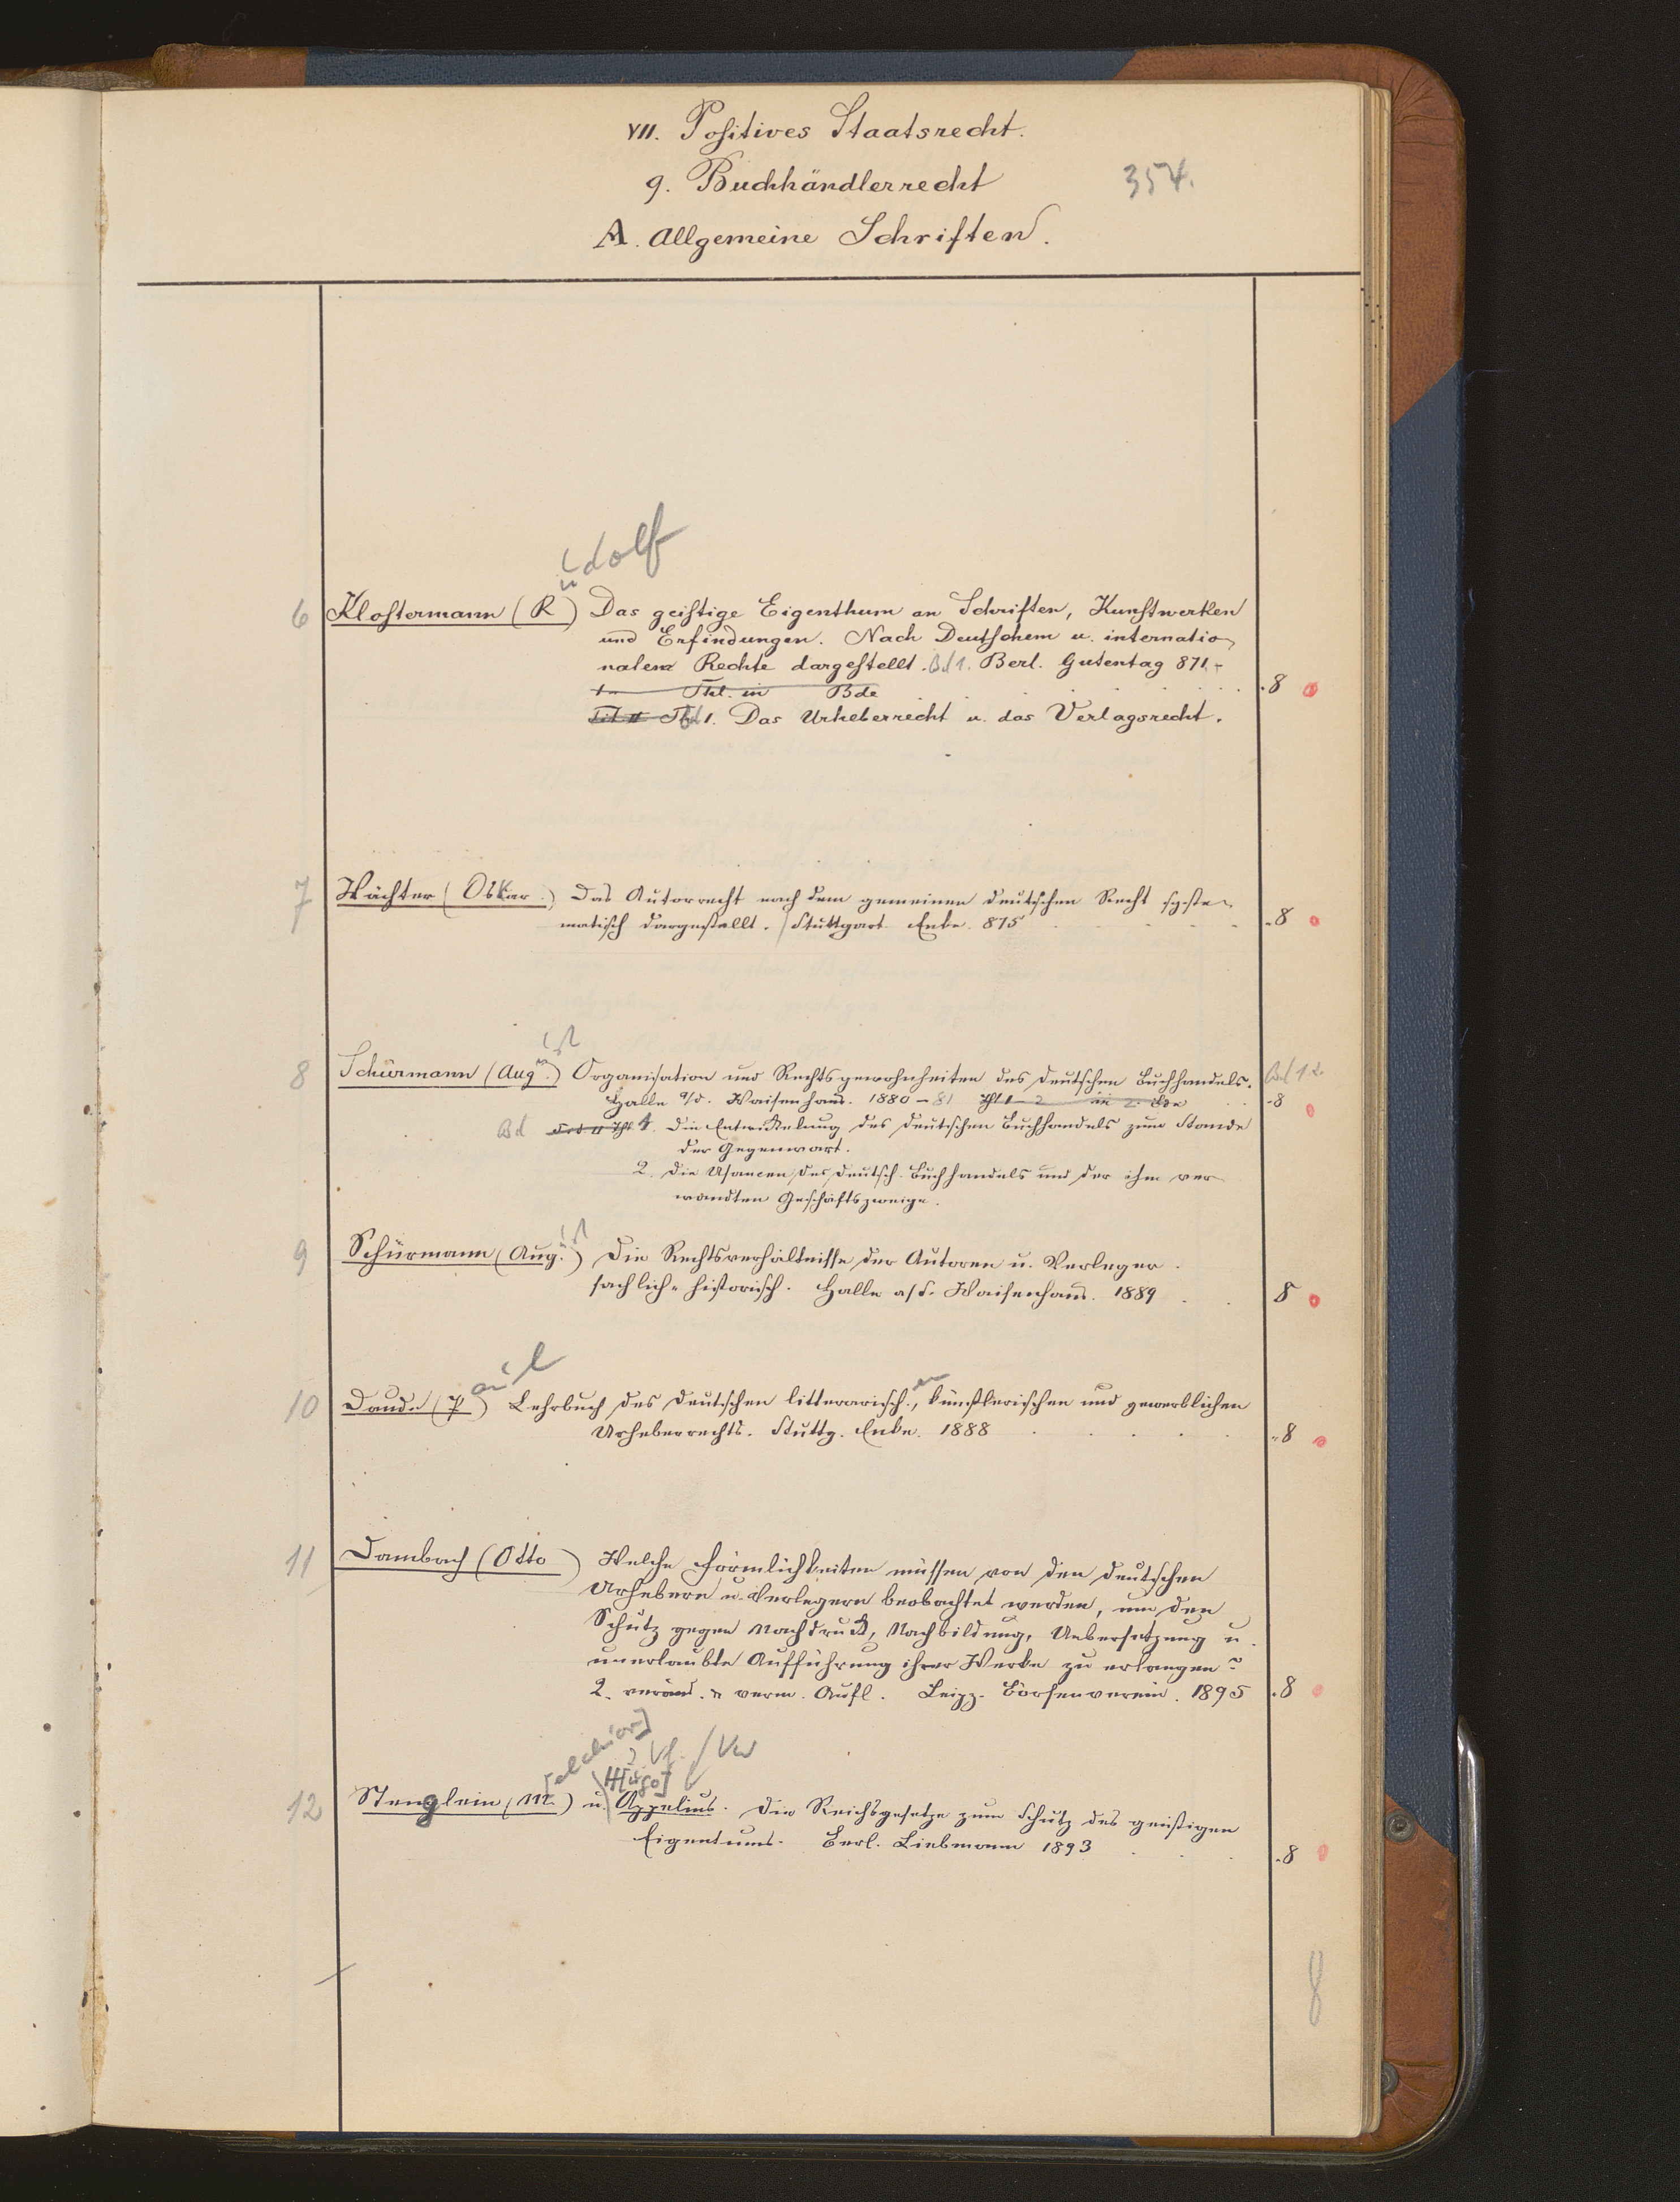 VII. Positives Staatsrecht.
9. Buchhändlerrecht
354.
A. Allgemeine Schriften.
udolf
6 Klostermann (R) Das geistige Eigenthum an Schriften, Kunstwerken
und Erfindungen. Nach Deutschem u. internatio-
nalem Rechte dargestellt. Bd 1. Berl. Gutentag 871
Thl. in Bde .8
Bd 1. Das Urheberrecht u. das Verlagsrecht.
7 Wächter (Oskar.) Das Autorrecht nach dem gemeinen deutschen Recht syste-
matisch dargestellt. Stuttgart Enke. 875 .8
ust
8 Schürmann (Aug.) Organisation und Rechtsgewohnheiten des deutschen Buchhandels. Bd 1 2
Halle a/S. Waisenhaus. 1880-81 Thl 1-2 in 2 Bde .8
Bd 1. Die Entwickelung des deutschen Buchhandels zum Stande
der Gegenwart.
2. Die Usancen des deutsch. Buchhandels und der ihm ver
wandten Geschäftszweige.
ust
9 Schürmann (Aug.) Die Rechtsverhältnisse der Autoren u. Verleger.
sachlich-historisch. Halle a/S. Waisenhaus. 1889 8
aul
en
10 Daude (P) Lehrbuch des deutschen litterarisch., künstlerischen und gewerblichen
Urheberrechts. Stuttg. Enke. 1888 .8
11 Dambach (Otto) Welche Förmlichkeiten müssen von den deutschen
Urhebern u. Verlegern beobachtet werden, um den
Schutz gegen Nachdruck, Nachbildung, Uebersetzung u.
unerlaubte Aufführung ihrer Werke zu erlangen?
2. veränd. u verm. Aufl. Leipz. Börsenverein. 1895 .8
[elchior]
2. Vf. / Vw
H[ugo]
12 Stenglein (M.) u. Appelius. Die Reichsgesetze zum Schutz des geistigen
Eigentums. Berl. Liebmann 1893 .8
8